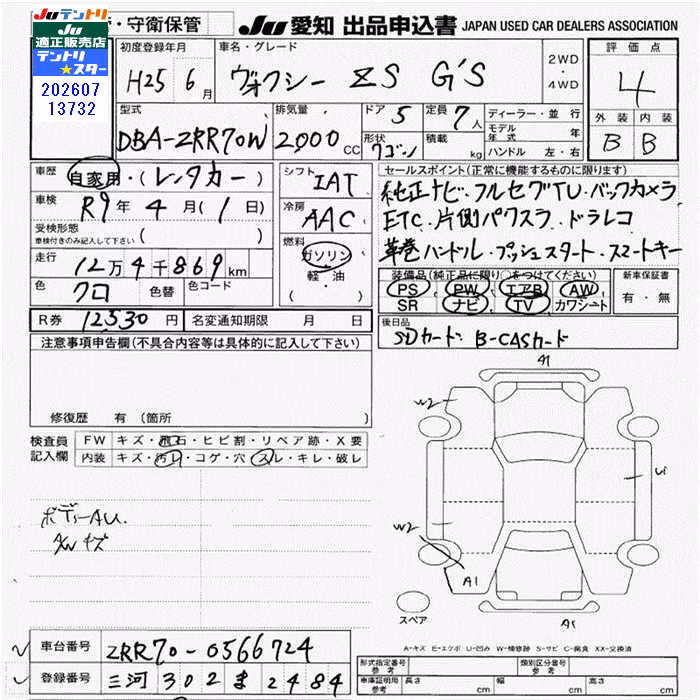 JUテントリ
JU
適正販売店
テントリ
★スター
202607
13732
・守衛保管
JU 愛知 出品申込書 JAPAN USED CAR DEALERS ASSOCIATION
初度登録年月
H25 6月
車名・グレード
ヴォクシー ZS G'S
2WD
・
4WD
評価点
4
外装 内装
B B
型式
DBA-ZRR70W
排気量
2000 CC
ドア 5
定員 7人
形状 ワゴン
積載 kg
ディーラー・並行
モデル年式 年
ハンドル 左・右
車歴 自家用・(レンタカー)
車検 R9年 4月(1日)
受検形態
車検付きのみ記入して下さい ( )
走行
12万4千869km
色 クロ 色替 色コード
シフト IAT
冷房 AAC
燃料
ガソリン
軽・油
(
)
セールスポイント(正常に機能するものに限ります)
純正ナビ・フルセグTV・バックカメラ
ETC・片側パワスラ・ドラレコ
革巻ハンドル・プッシュスタート・スマートキー
装備品(純正品に限り○をつけてください)
PS PW エアB AW
SR ナビ TV カワシート
新車保証書
有・無
R券 12530円 名変通知期限 月 日
後日品
SDカード B-CASカード
注意事項申告欄(不具合内容等は具体的に記入して下さい)
修復歴 有(箇所
検査員
記入欄
FW キズ・飛石・ヒビ割・リペア跡・X要
内装 キズ・汚レ・コゲ・穴・スレ・キレ・破レ
ボディーAU.
A/Wキズ
A1
W2
U1
W2
A1
A1
スペア
A-キズ E-エクボ U-凹み W-補修跡 S-サビ C-腐食 XX-交換済
車台番号 ZRR70-0566724
登録番号 三河 302 ま 2484
形式指定番号
参考
類別区分番号
参考
車庫証明用
参考
長さ cm 幅 cm 高さ cm